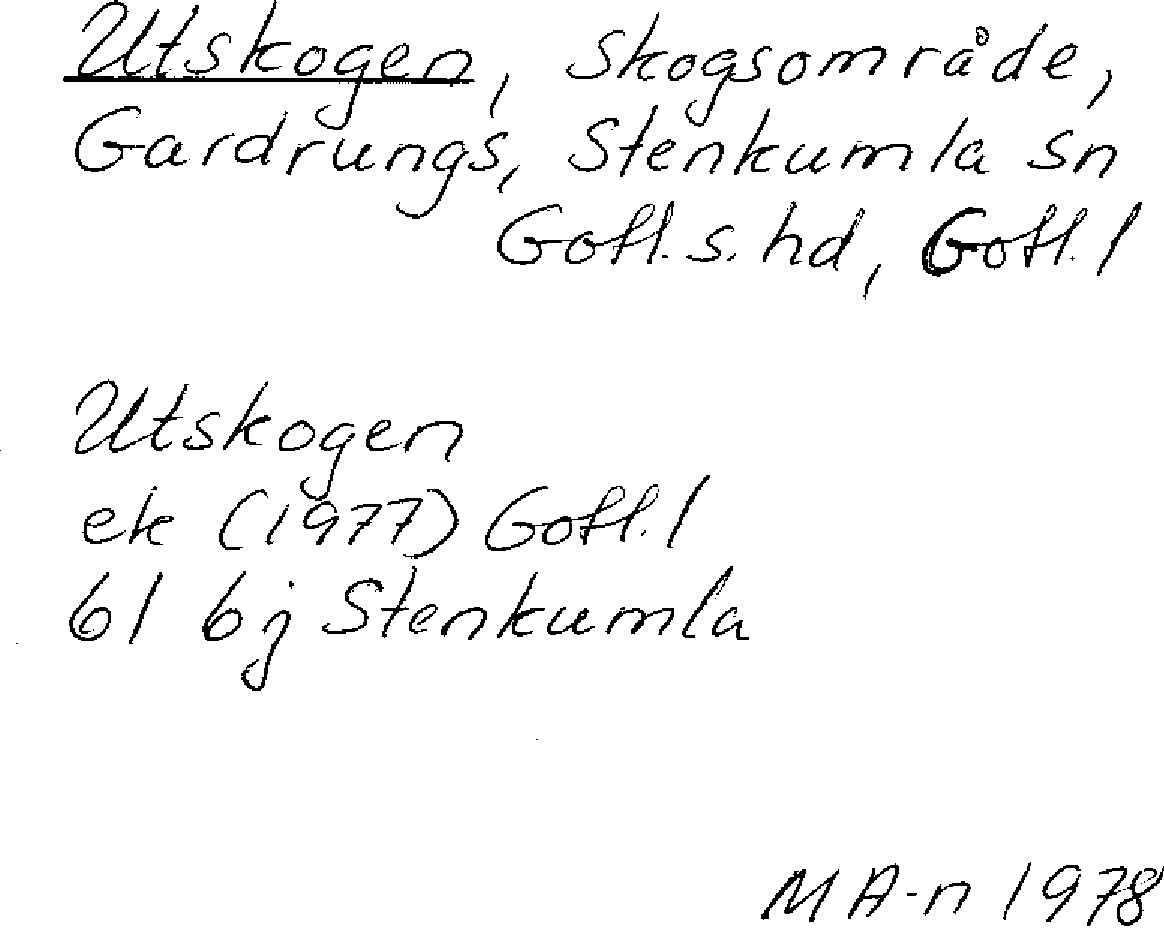 Utskogen, Skogsområde,
Gardrungs, Stenkumla sn
Gotl. s. hd, Gotl. l
Utskogen
ek (1977) Gotl. l
bl 6j Stenkumla
MA-n 1978